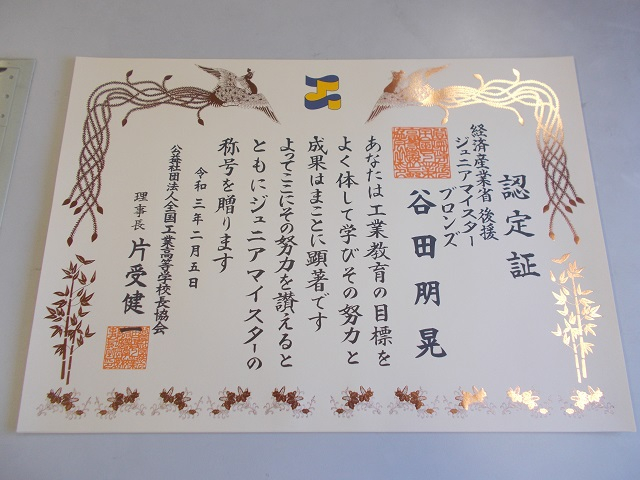 認定証
経済産業省 後援
ジュニアマイスター
ブロンズ
谷田朋晃
あなたは工業教育の目標を
よく体して学びその努力と
成果はまことに顕著です
よってここにその努力を讃えると
ともにジュニアマイスターの
称号を贈ります
令和三年二月五日
公益社団法人全国工業高等学校長協会
理事長 片受健一